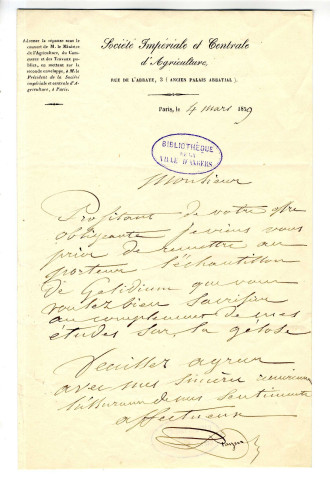 Adresser la réponse sous le
couvert de M. le Ministre
de l'Agriculture, du Commerce
et des Travaux publics,
en mettant sur la
seconde enveloppe, à M. le
Président de la Société
impériale et centrale d'Agriculture,
à Paris.
Société Impériale et Centrale
d'Agriculture,
RUE DE L'ABBAYE, 3 (ANCIEN PALAIS ABBATIAL).
Paris, le 4 mars 1859
BIBLIOTHÈQUE
DE LA
VILLE D'ANGERS
Monsieur
Profitant de votre offre
obligeante je viens vous
prier de remettre au
porteur l'échantillon
de Gelidium que vous
voulez bien sacrifier
au complement de mes
études sur la gelose
Veuillez agréer
avec mes sincères
de mes sentiments
affectueux
Payen